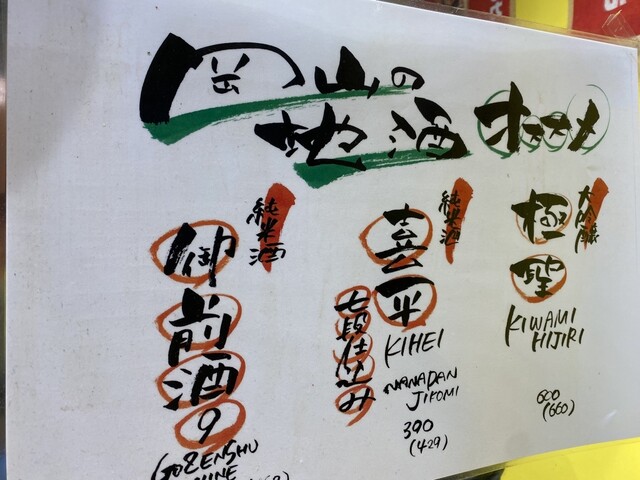 岡山の
地酒
オススメ
大吟醸
極聖
KIWAMI
HIJIRI
600
(660)
純米酒
喜平
七段仕込み
KIHEI
NANADAN
JIKOMI
390
(429)
純米酒
御前酒
9
(GOZENSHU
NINE